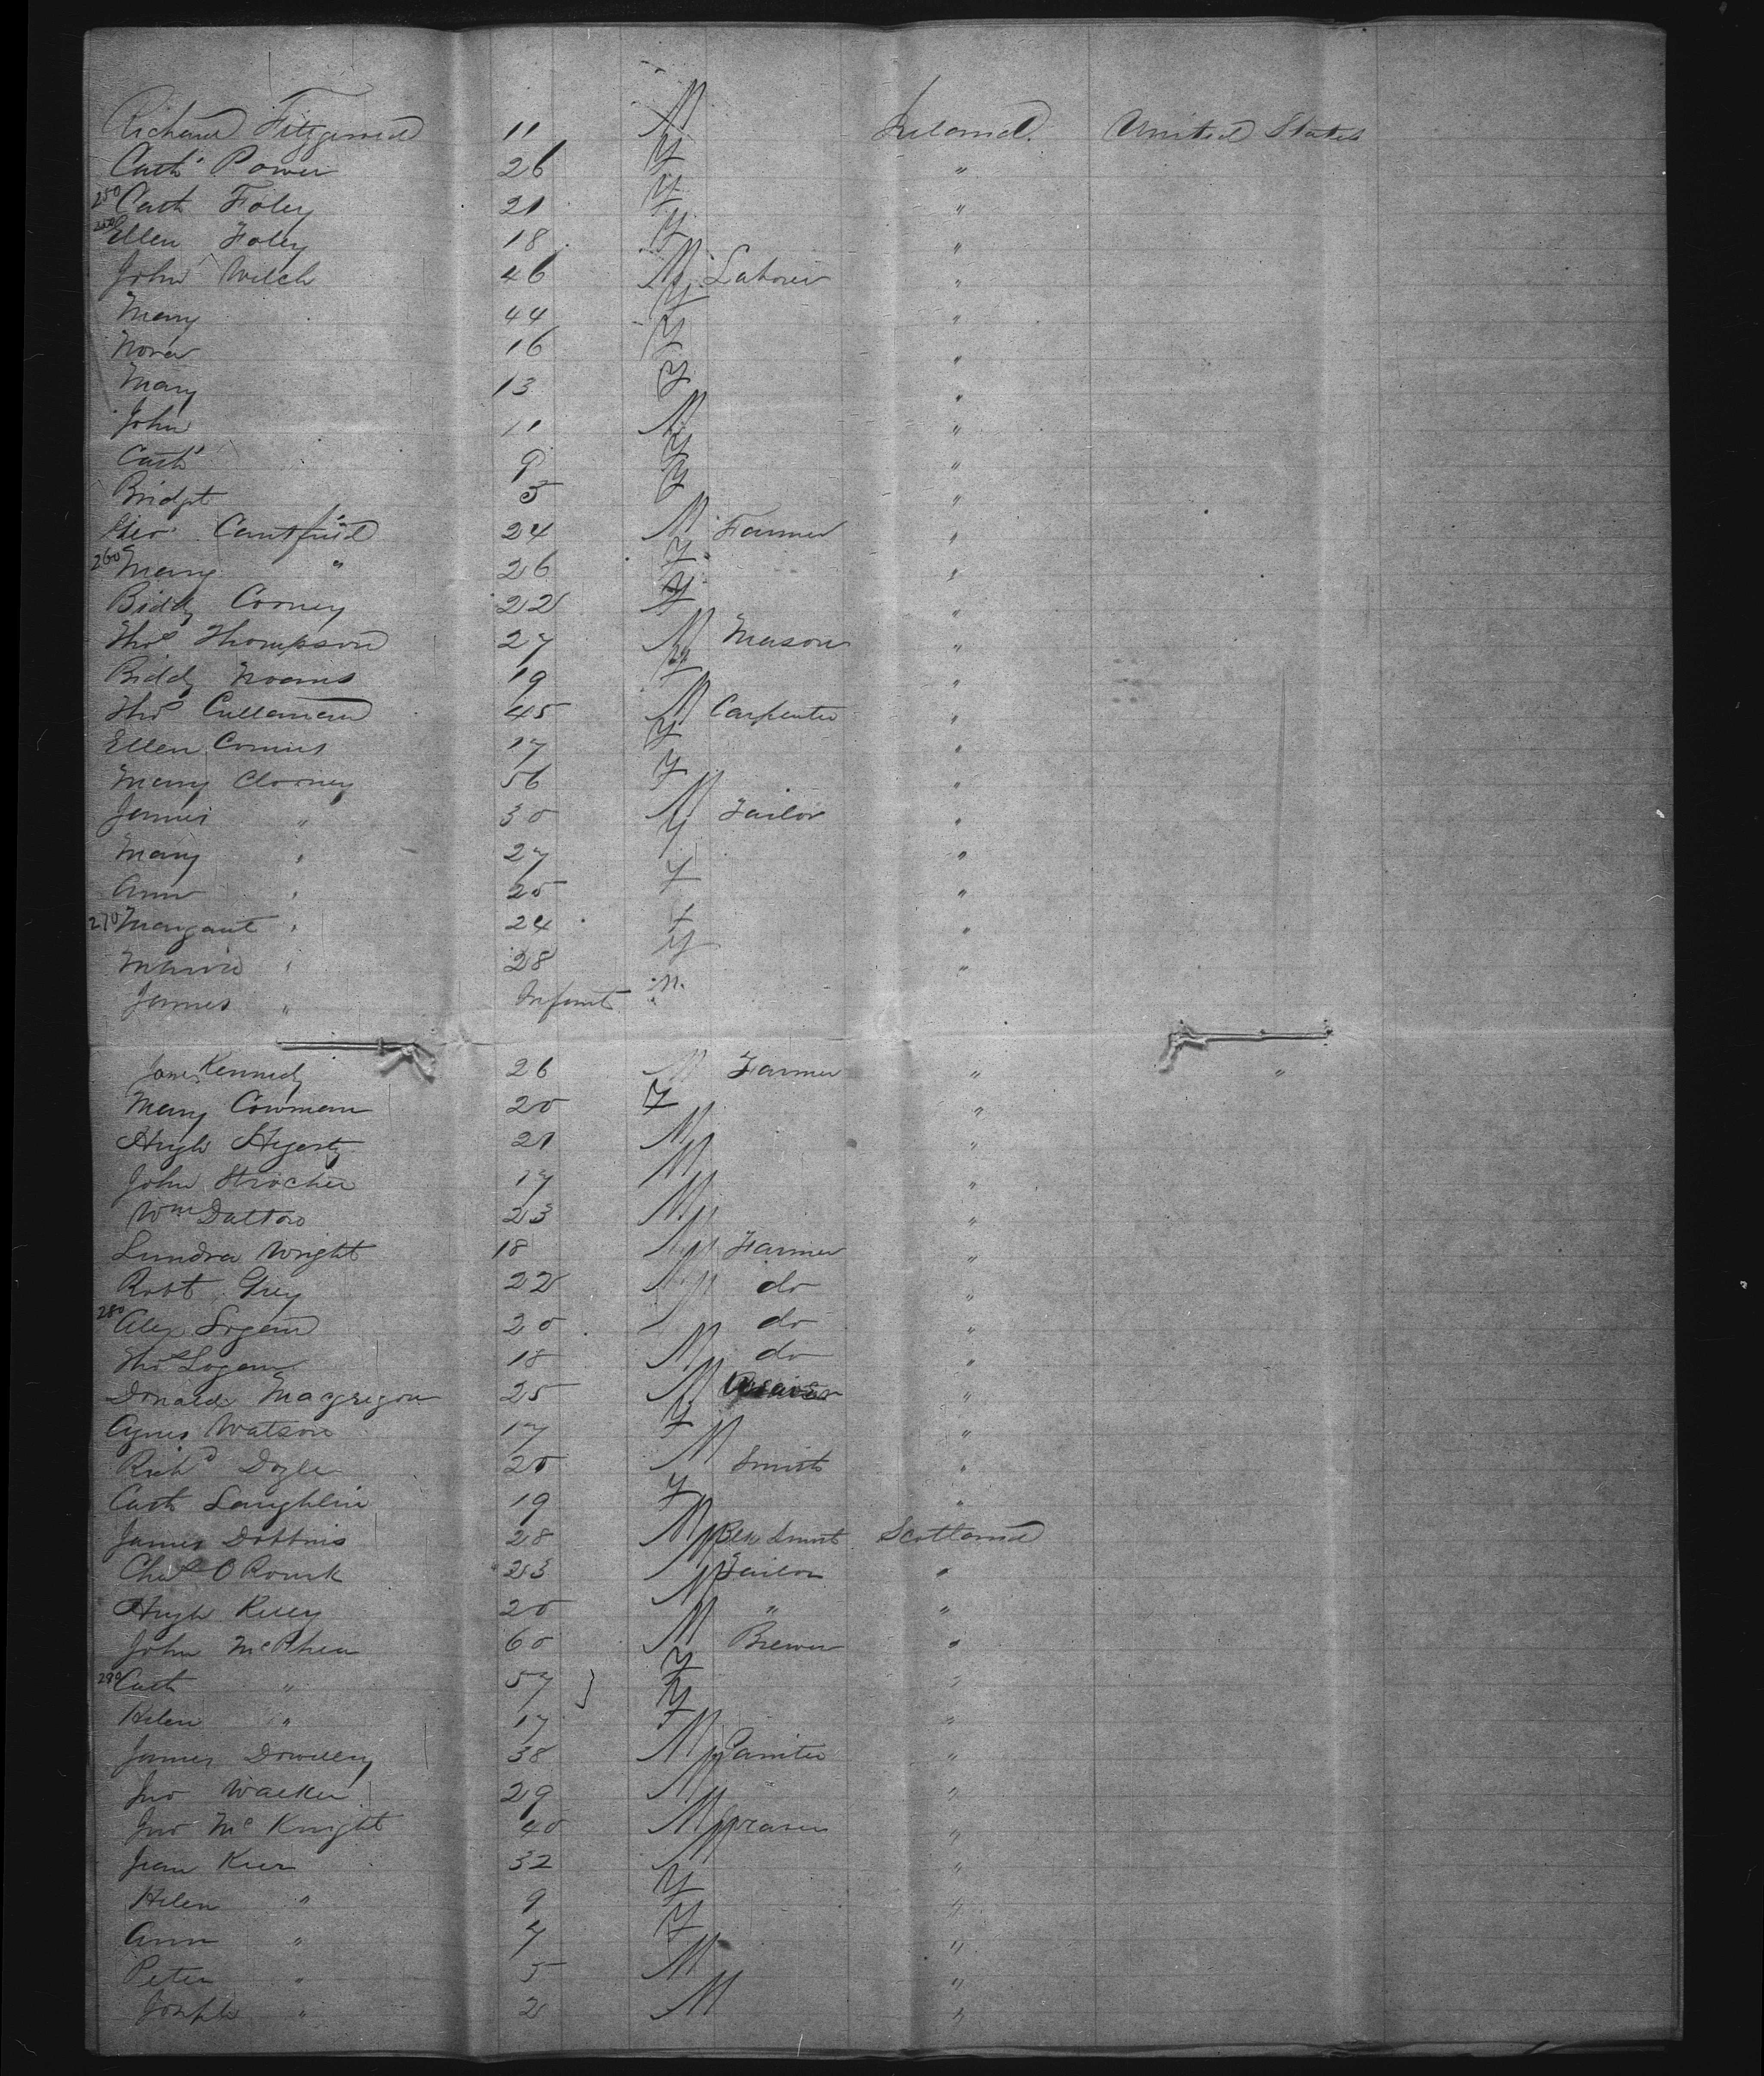 Richard Fitzgerald 11 M Ireland. United States
Cath Power 26 F "
250 Cath Foley 21 F "
Ellen Foley 18 F "
John Welch 46 M Laborer "
Mary 44 F "
Nora 16 F "
Mary 13 F "
John 11 M "
Cath 9 F "
Bridgt 5 F "
Geo. Cantfield 24 M Farmer "
260 Mary " 26 F "
Biddy Cooney 22 F "
Thos Thompson 27 M Mason "
Biddy 19 F "
Thos Cullanan 45 M Carpenter "
Ellen 17 F "
Mary Clooney 56 F "
James " 30 M Tailor "
Mary " 27 F "
Ann " 25 F "
270 Margaret " 24 F "
Maria " 28 F "
James " Infant M.
James Kennedy 26 M Farmer " "
Mary Cowman 20 F "
Hugh Hegerty 21 M "
John 17 M "
Wm Dalton 23 M "
Wright 18 M Farmer "
Robt Grey 22 M do "
280 Alex Logan 20 do "
Thos Logan 18 M do "
Donald Macgregor 25 M Weaver "
Agnes Watson 17 F "
Richd Doyle 20 M Smith "
Cath Laughlin 19 F "
James Dobbins 28 M Blk Smit Scotland
Chas O Rourk 23 M Tailor "
Hugh Kelly 20 M " "
John McPhea 60 M Brewer "
290 Cath " 57 } F "
Helen " 17 F "
James Dowlley 38 M Painter "
Jno Walker 29 M "
Jno Mc Knight 40 M "
Jean Keer 32 "
Helen " 9 F "
Ann " 7 F "
Peter " 5 M "
Joseph " 2 M "